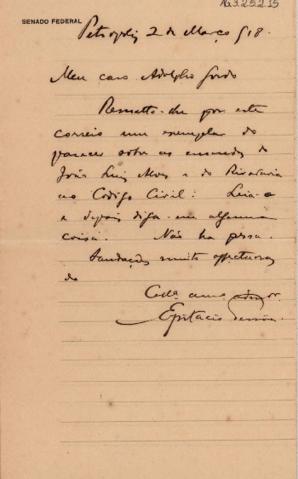 AG3.25.2.15
SENADO FEDERAL
Petropolis 2 de Março 918.
Meu caro Adolpho Gordo
Remetto-lhe por este
correio um exemplar do
parecer sobre as emendas do
João Luiz Alves e do Rivadavia
ao Codigo Civil: Leia-o
e depois diga-me alguma
coisa. Não ha pressa.
Saudações muito affectuosas
do
Coll.ª amo
Epitacio Pessôa